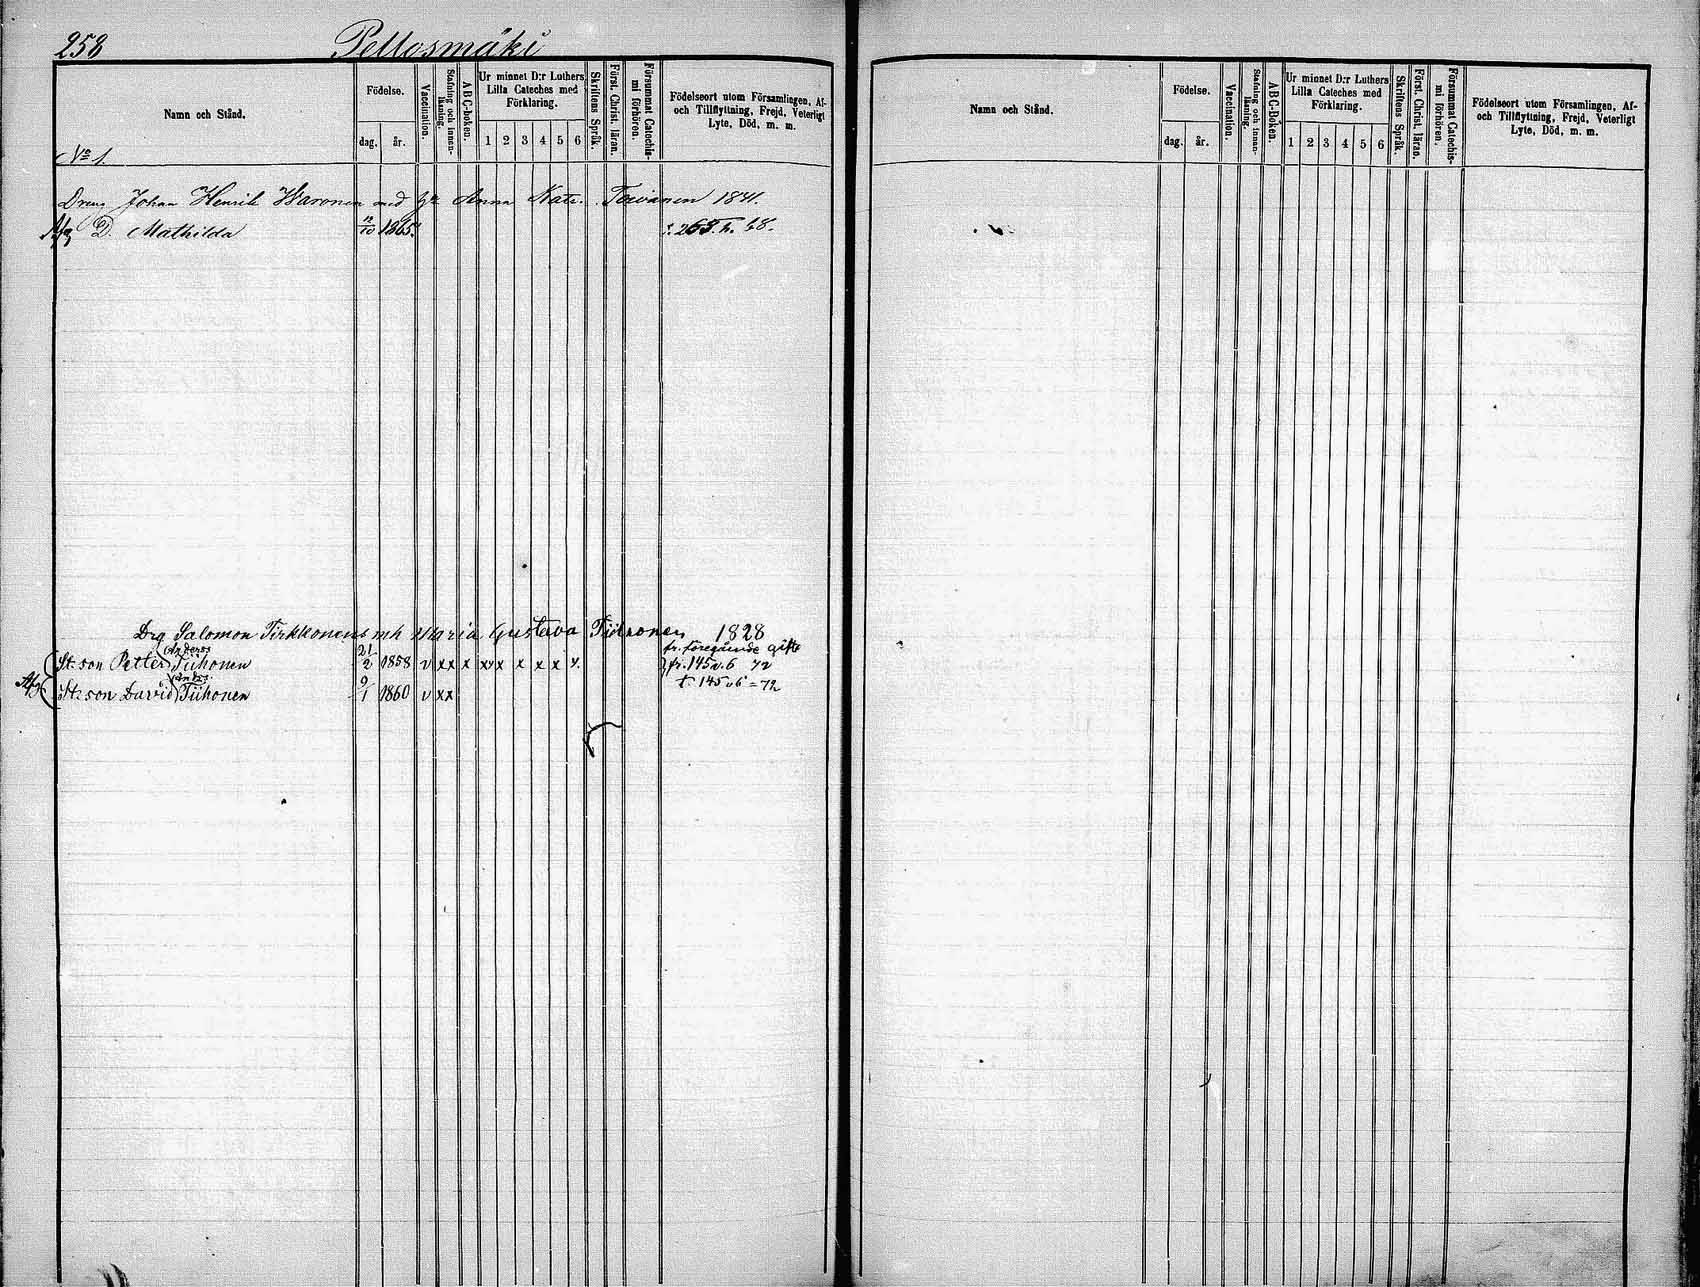 258 Pellosmäki
Namn och Stånd.
Födelse.
dag. år.
Vaccination.
Stafning och innan-läsning.
ABC-boken.
Ur minnet D:r Luthers
Lilla Cateches med
Förklaring.
1 2 3 4 5 6
Skriftens Språk.
Först. Christ. läran.
Försummat Catechis-
mi förhören.
Födelseort utom Församlingen, Af-
och Tillflyttning, Frejd, Veterligt
Lyte, Död, m. m.
No 1.
Dreng Johan Henrik Waronen med Anna Katr. Toivanen 1841.
D. Mathilda 12/10 1865. 68.
Drg Salomon Tirkkonens mh Maria Gustava Tiihonen 1828
fr. föregående gifte
St: son Petter (Anderss) Tiihonen 21/2 1858 v xx x xx x x x x x. fr. 145 v. 6 72
St: son David Tiihonen 9/1 1860 v xx t. 145 v 6 = 72
Namn och Stånd.
Födelse.
dag. år.
Vaccination.
Stafning och innan-läsning.
ABC-Boken.
Ur minnet D:r Luthers
Lilla Cateches med
Förklaring.
1 2 3 4 5 6
Skriftens Språk.
Först. Christ. läran.
Försummat Catechis-
mi förhören.
Födelseort utom Församlingen, Af-
och Tillflyttning, Frejd, Veterligt
Lyte, Död, m. m.